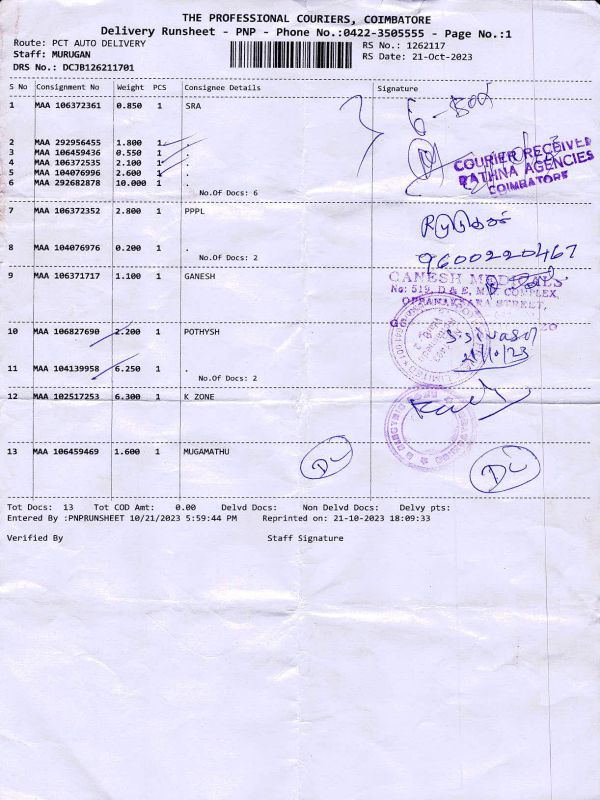 THE PROFESSIONAL COURIERS, COIMBATORE
Delivery Runsheet - PNP - Phone No.:0422-3505555 - Page No.:1
Route: PCT AUTO DELIVERY
RS No.: 1262117
Staff: MURUGAN
RS Date: 21-Oct-2023
DRS No.: DCJB126211701
S No Consignment No Weight PCS Consignee Details Signature
1 MAA 106372361 0.850 1 SRA
2 MAA 292956455 1.800 1 .
3 MAA 106459436 0.550 1 .
4 MAA 106372535 2.100 1 .
5 MAA 104076996 2.600 1 .
6 MAA 292682878 10.000 1 .
No.Of Docs: 6
6-Box
COURIER RECEIVED
RATHNA AGENCIES
COIMBATORE
7 MAA 106372352 2.800 1 PPPL
8 MAA 104076976 0.200 1 .
No.Of Docs: 2
9600220467
9 MAA 106371717 1.100 1 GANESH
GANESH MEDICALS
No: 519, D & E, M.V. COMPLEX,
OPPANAKKARA STREET,
10 MAA 106827690 2.200 1 POTHYSH
S. Sivasa
21/10/23
11 MAA 104139958 6.250 1 .
No.Of Docs: 2
12 MAA 102517253 6.300 1 K ZONE
13 MAA 106459469 1.600 1 MUGAMATHU
DL
DL
Tot Docs: 13 Tot COD Amt: 0.00 Delvd Docs: Non Delvd Docs: Delvy pts:
Entered By :PNPRUNSHEET 10/21/2023 5:59:44 PM Reprinted on: 21-10-2023 18:09:33
Verified By Staff Signature